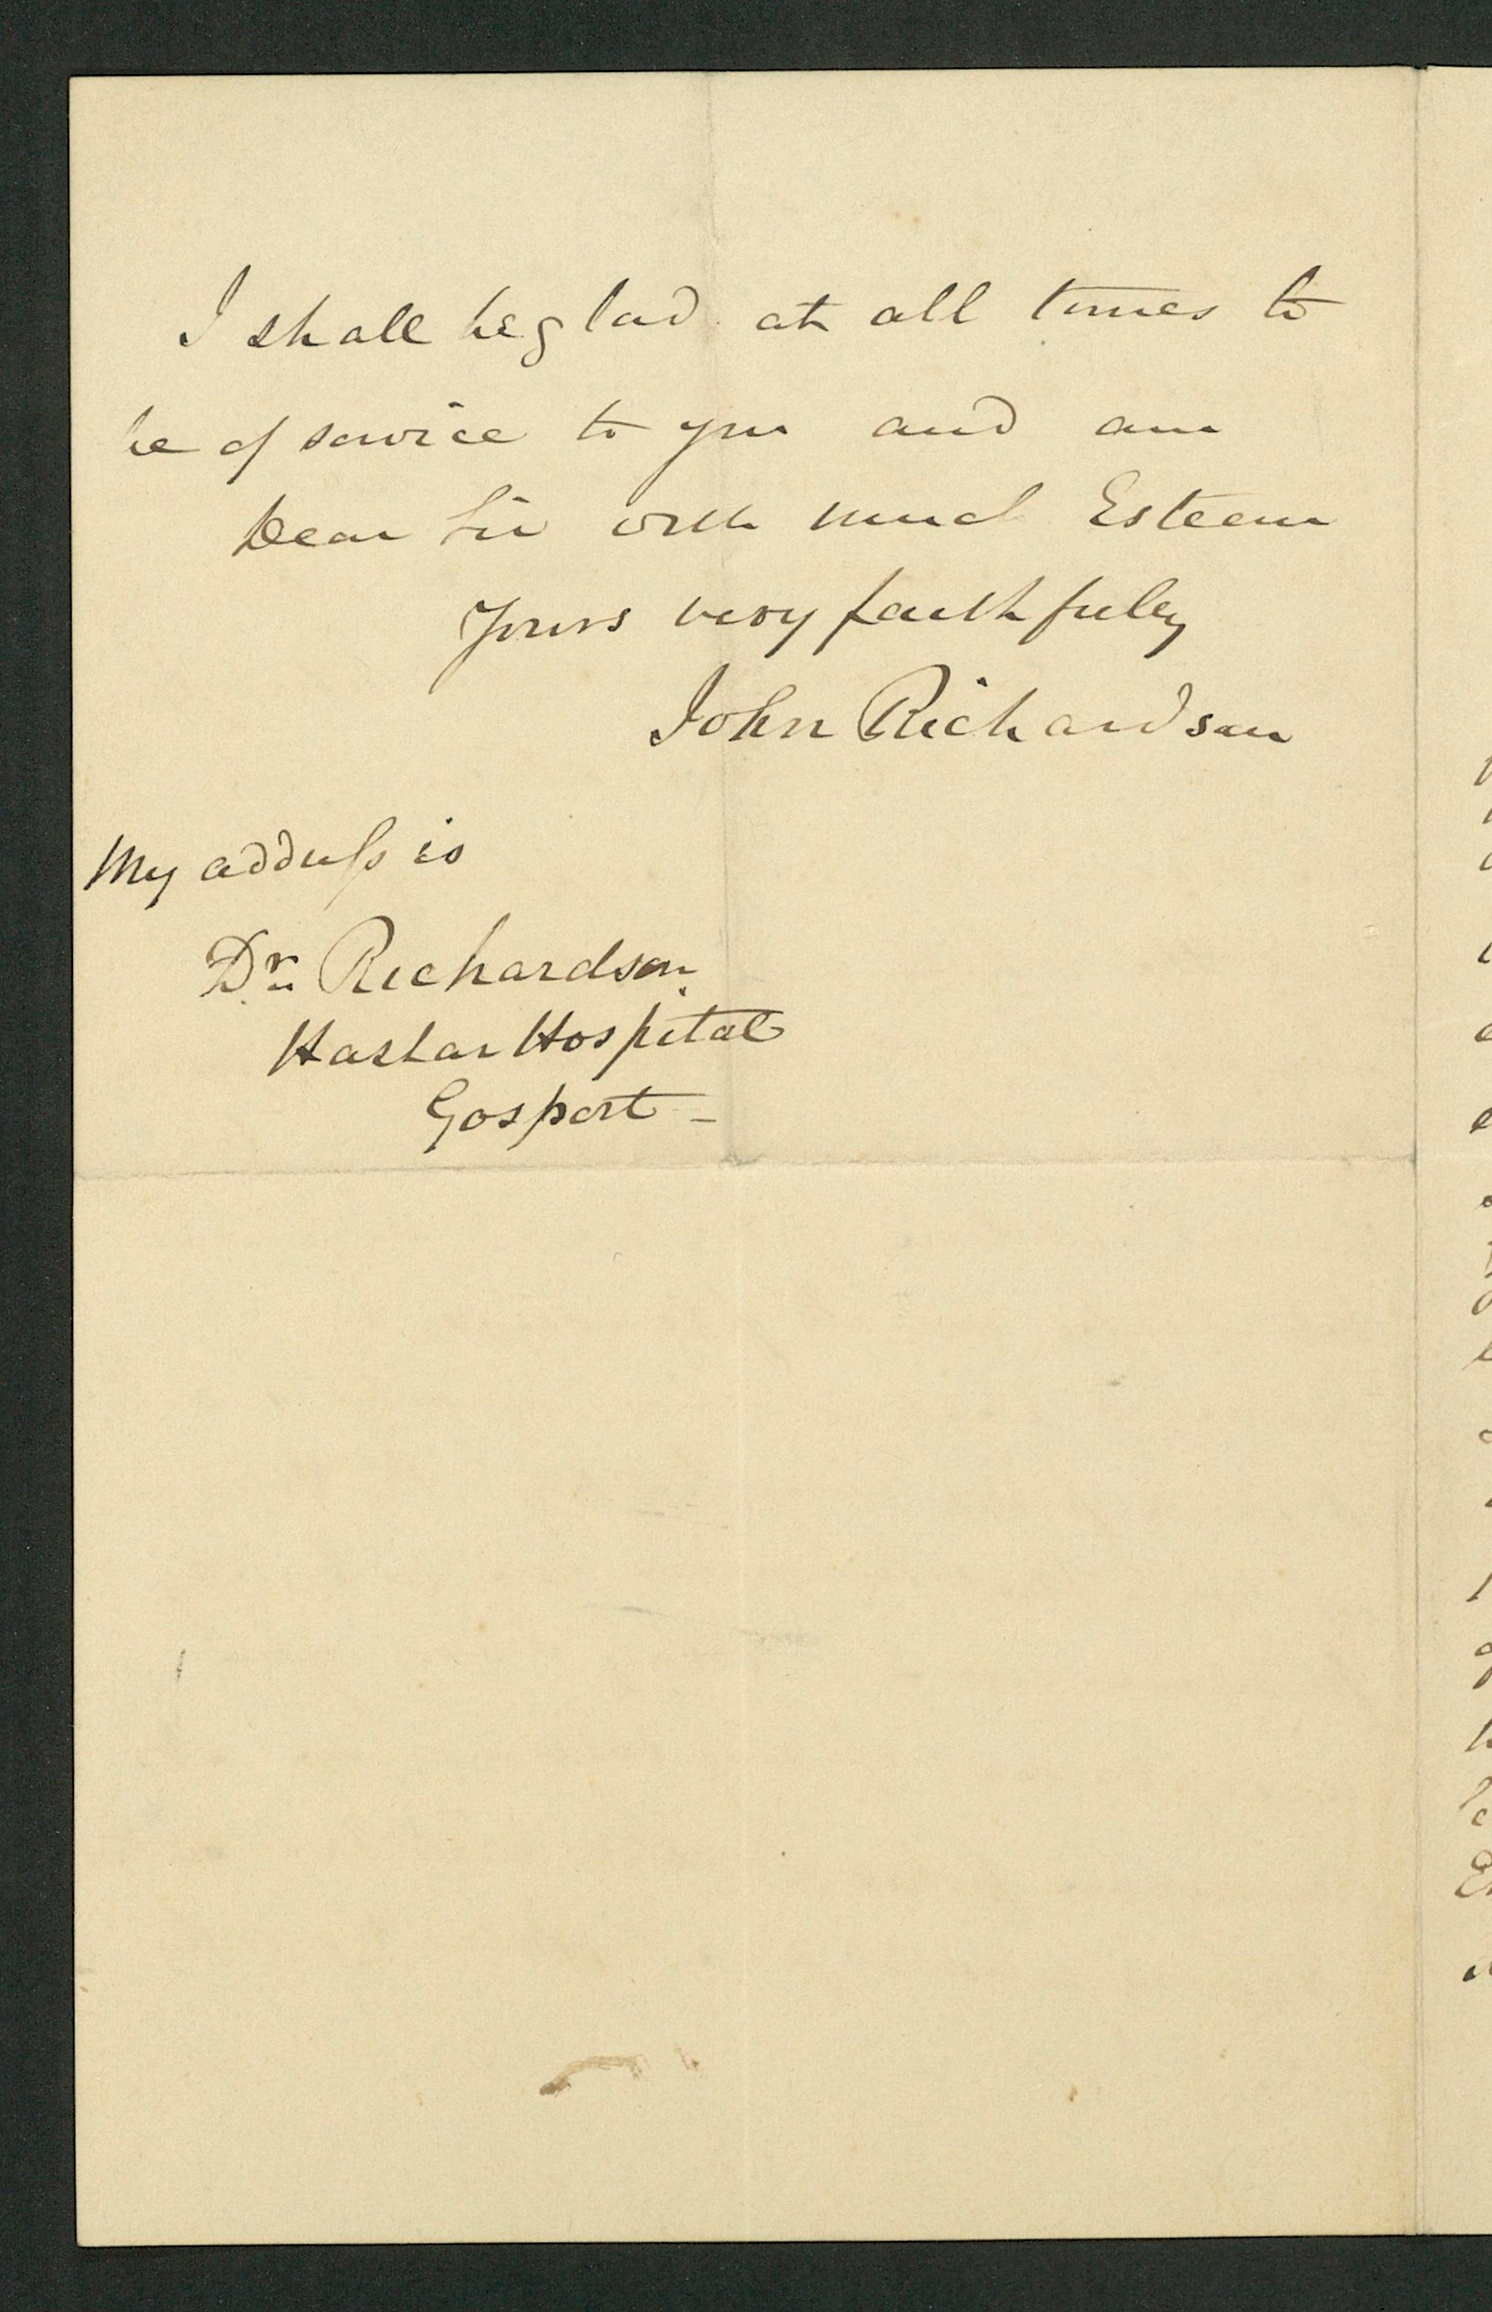 I shall be glad at all times to
be of service to you and am
Dear Sir with much Esteem
Yours very faithfully
John Richardson
My addreſs is
Dr. Richardson
Haslar Hospital
Gosport –